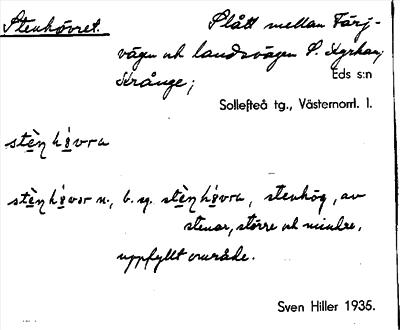 Stenhövret. Slått mellan Färj-
vägen och landsvägen S.
Krånge;
Eds s:n
Sollefteå tg., Västernorrl. l.
stèn hövra
stèn hövär n., b. sg. stèn hövra, stenhög, av
stenar, större och mindre,
uppfyllt område.
Sven Hiller 1935.